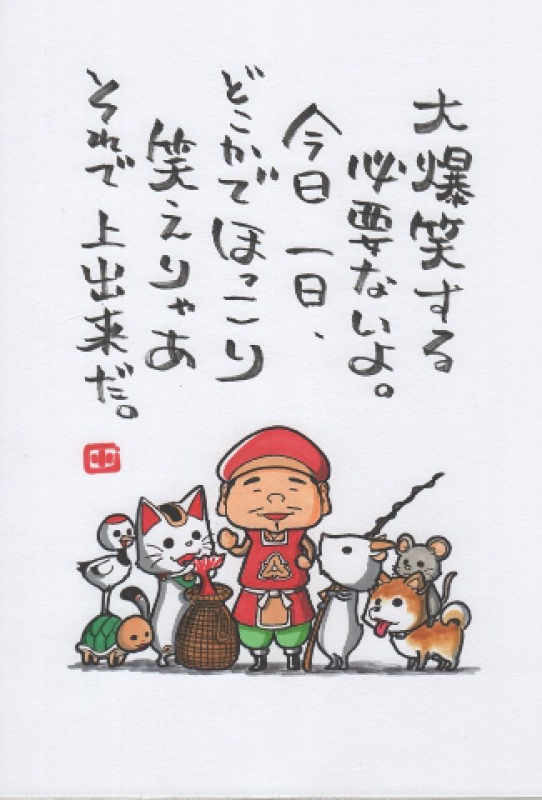 大爆笑する
必要ないよ。
今日一日、
どこかでほっこり
笑えりゃあ
それで上出来だ。